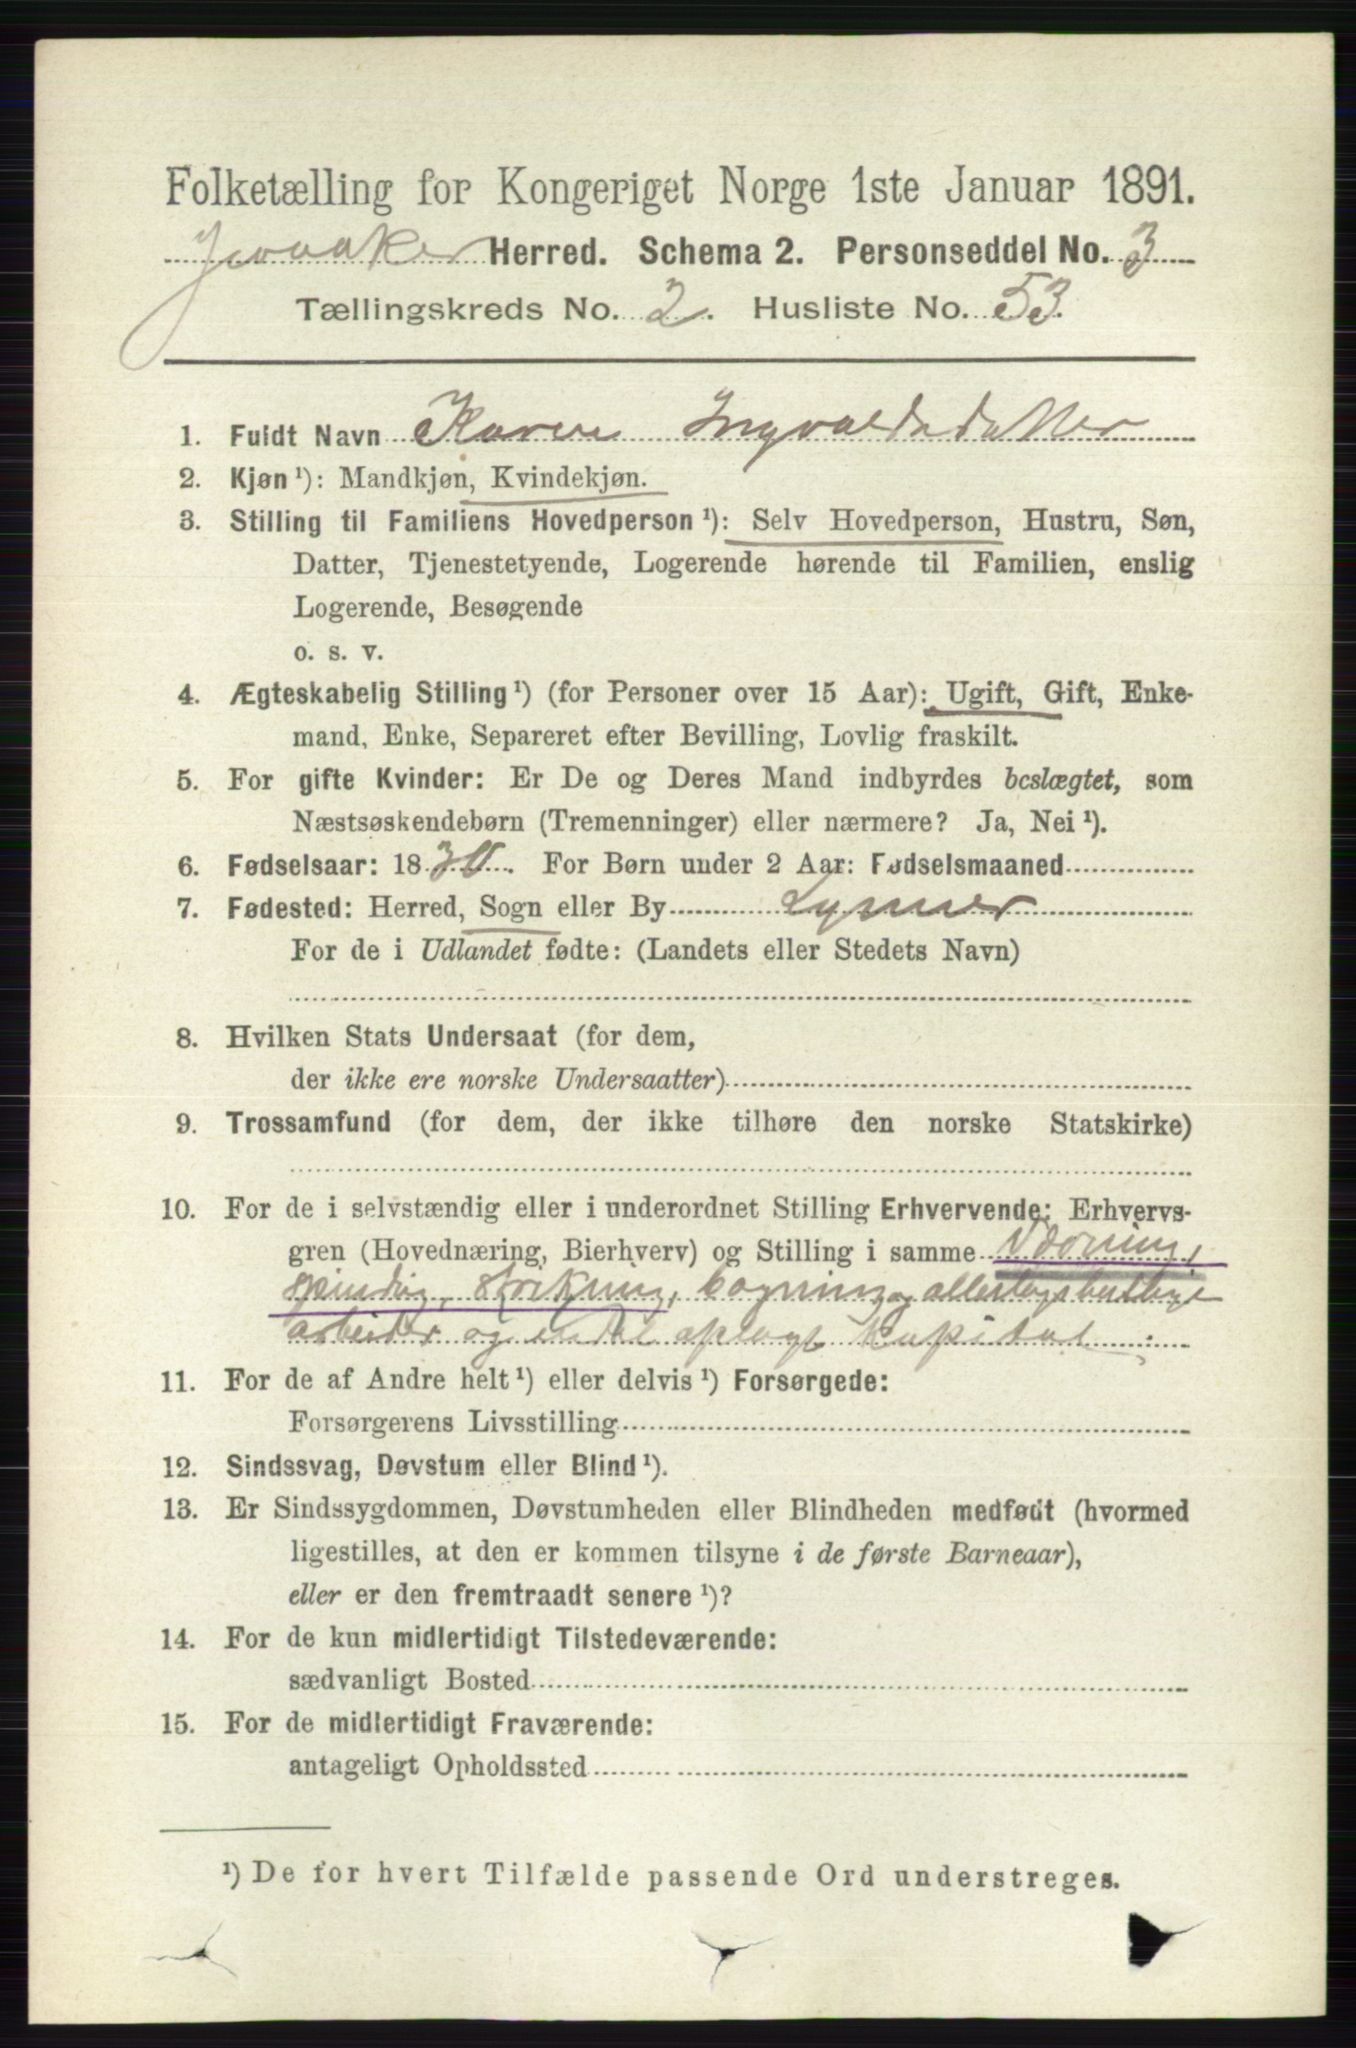 Folketælling for Kongeriget Norge 1ste Januar 1891.
Herred. Schema 2. Personseddel No. 3
Tællingskreds No. 2. Husliste No. 53.
1. Fuldt Navn Karen Ingvaldsdatter
2. Kjøn ¹): Mandkjøn, Kvindekjøn.
3. Stilling til Familiens Hovedperson ¹): Selv Hovedperson, Hustru, Søn,
Datter, Tjenestetyende, Logerende hørende til Familien, enslig
Logerende, Besøgende
o. s. v.
4. Ægteskabelig Stilling ¹) (for Personer over 15 Aar): Ugift, Gift, Enke-
mand, Enke, Separeret efter Bevilling, Lovlig fraskilt.
5. For gifte Kvinder: Er De og Deres Mand indbyrdes beslægtet, som
Næstsøskendebørn (Tremenninger) eller nærmere? Ja, Nei ¹).
6. Fødselsaar: 1830. For Børn under 2 Aar: Fødselsmaaned
7. Fødested: Herred, Sogn eller By
For de i Udlandet fødte: (Landets eller Stedets Navn)
8. Hvilken Stats Undersaat (for dem,
der ikke ere norske Undersaatter)
9. Trossamfund (for dem, der ikke tilhøre den norske Statskirke)
10. For de i selvstændig eller i underordnet Stilling Erhvervende: Erhvervs-
gren (Hovednæring, Bierhverv) og Stilling i samme
spinding, strikning, og
arbeider og kapital.
11. For de af Andre helt ¹) eller delvis ¹) Forsørgede:
Forsørgerens Livsstilling
12. Sindssvag, Døvstum eller Blind ¹).
13. Er Sindssygdommen, Døvstumheden eller Blindheden medfødt (hvormed
ligestilles, at den er kommen tilsyne i de første Barneaar),
eller er den fremtraadt senere ¹)?
14. For de kun midlertidigt Tilstedeværende:
sædvanligt Bosted
15. For de midlertidigt Fraværende:
antageligt Opholdssted
¹) De for hvert Tilfælde passende Ord understreges.